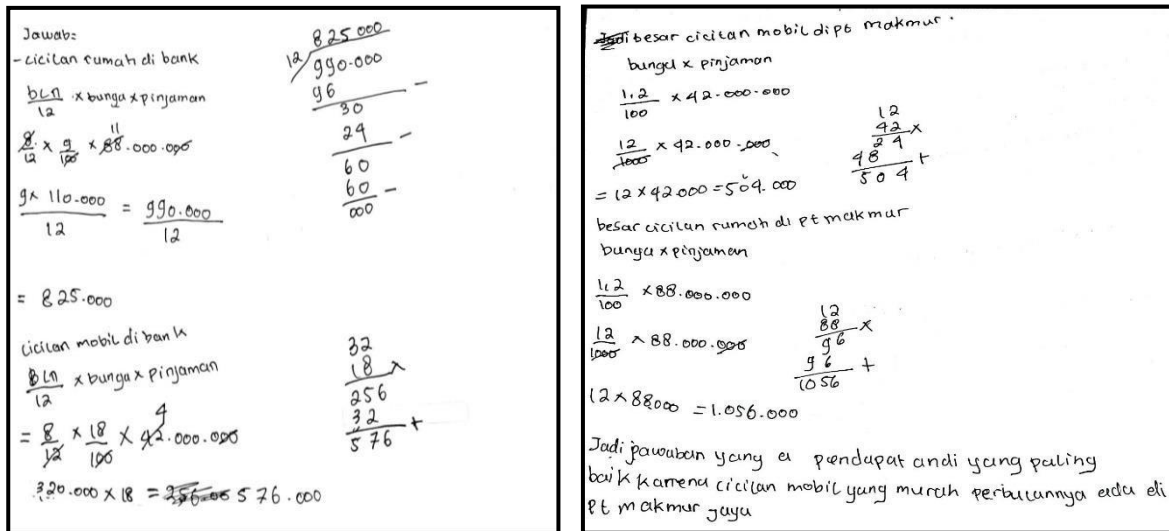 Jawab:
- cicilan rumah di bank
bln/12 x bunga x pinjaman
8/12 x 9/100 x 88.000.000
11
9 x 110.000 / 12 = 990.000 / 12
= 825.000
825000
12 / 990.000
96 -
30
24 -
60
60 -
000
cicilan mobil di bank
bln/12 x bunga x pinjaman
4
= 8/12 x 18/100 x 42.000.000
320.000 x 18 = 576.000
32
18 x
256
32 +
576
besar cicilan mobil di pt makmur.
bunga x pinjaman
1,2/100 x 42.000.000
12/1000 x 42.000.000
= 12 x 42.000 = 504.000
12
42 x
24
48 +
504
besar cicilan rumah di pt makmur
bunga x pinjaman
1,2/100 x 88.000.000
12/1000 x 88.000.000
12 x 88.000 = 1.056.000
12
88 x
96
96 +
1056
Jadi jawaban yang a pendapat andi yang paling
baik karena cicilan mobil yang murah perbulannya ada di
Pt makmur jaya